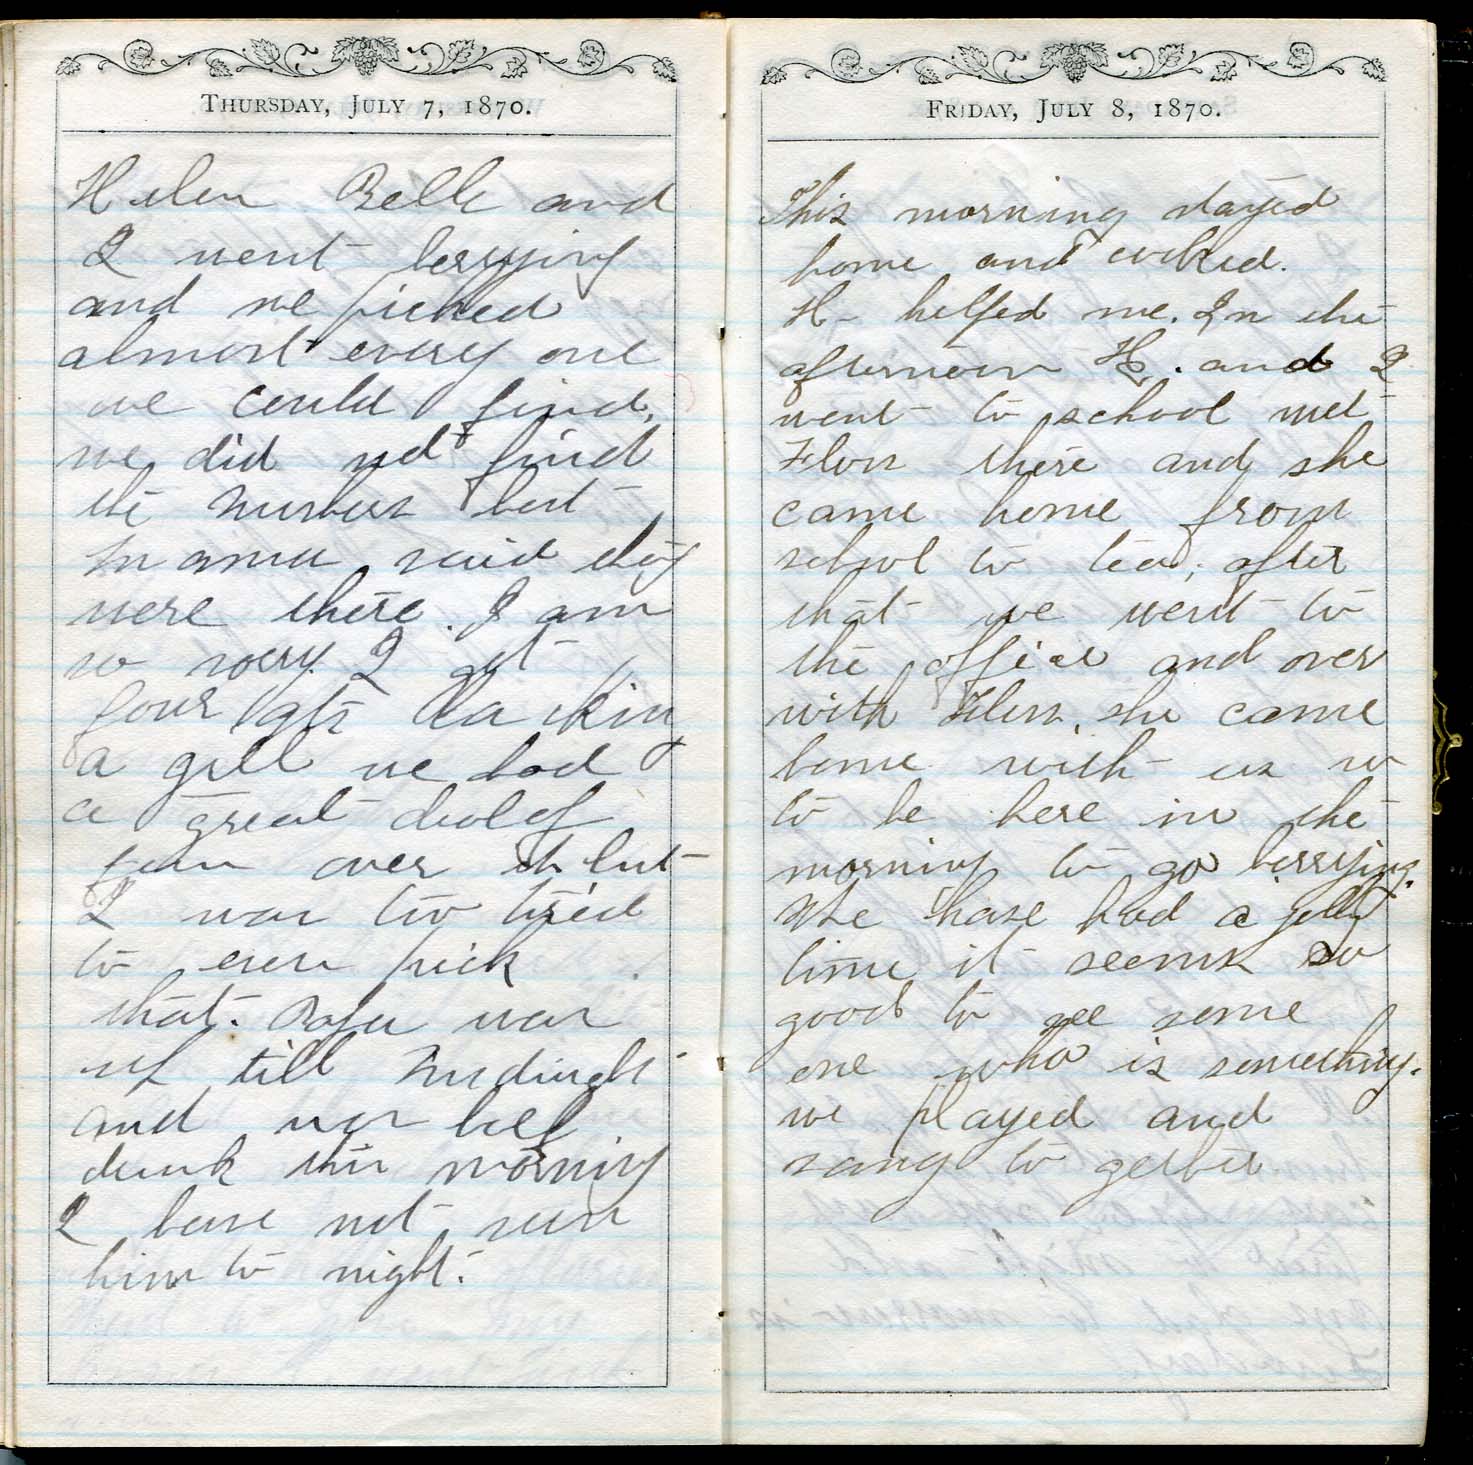 THURSDAY, JULY 7, 1870.
Helen Belle and
I went berrying
and we picked
almost every one
we could find,
we did not find
the number but
Mama said they
were there. I am
so sorry I got
four qts lacking
a gill we had
a great deal of
fun over it but
I was too tired
to even pick
that. Papa was
up till midnight
and was half
drunk this morning
I have not seen
him to night.
FRIDAY, JULY 8, 1870.
This morning stayed
home and cooked.
H- helped me. In the
afternoon H. and I
went to school met
Floss there and she
came home from
school to tea, after
that we went to
the office and over
with Floss, she came
home with us so
to be here in the
morning to go berrying.
We have had a jolly
time it seems so
good to see some
one who is something.
we played and
sang to gether